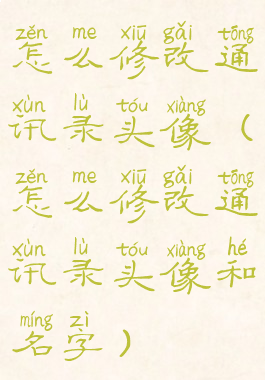 zěn me xiū gǎi tōng
怎么修改通
xùn lù tóu xiàng
讯录头像（
zěn me xiū gǎi tōng
怎么修改通
xùn lù tóu xiàng hé
讯录头像和
míng zì
名字）